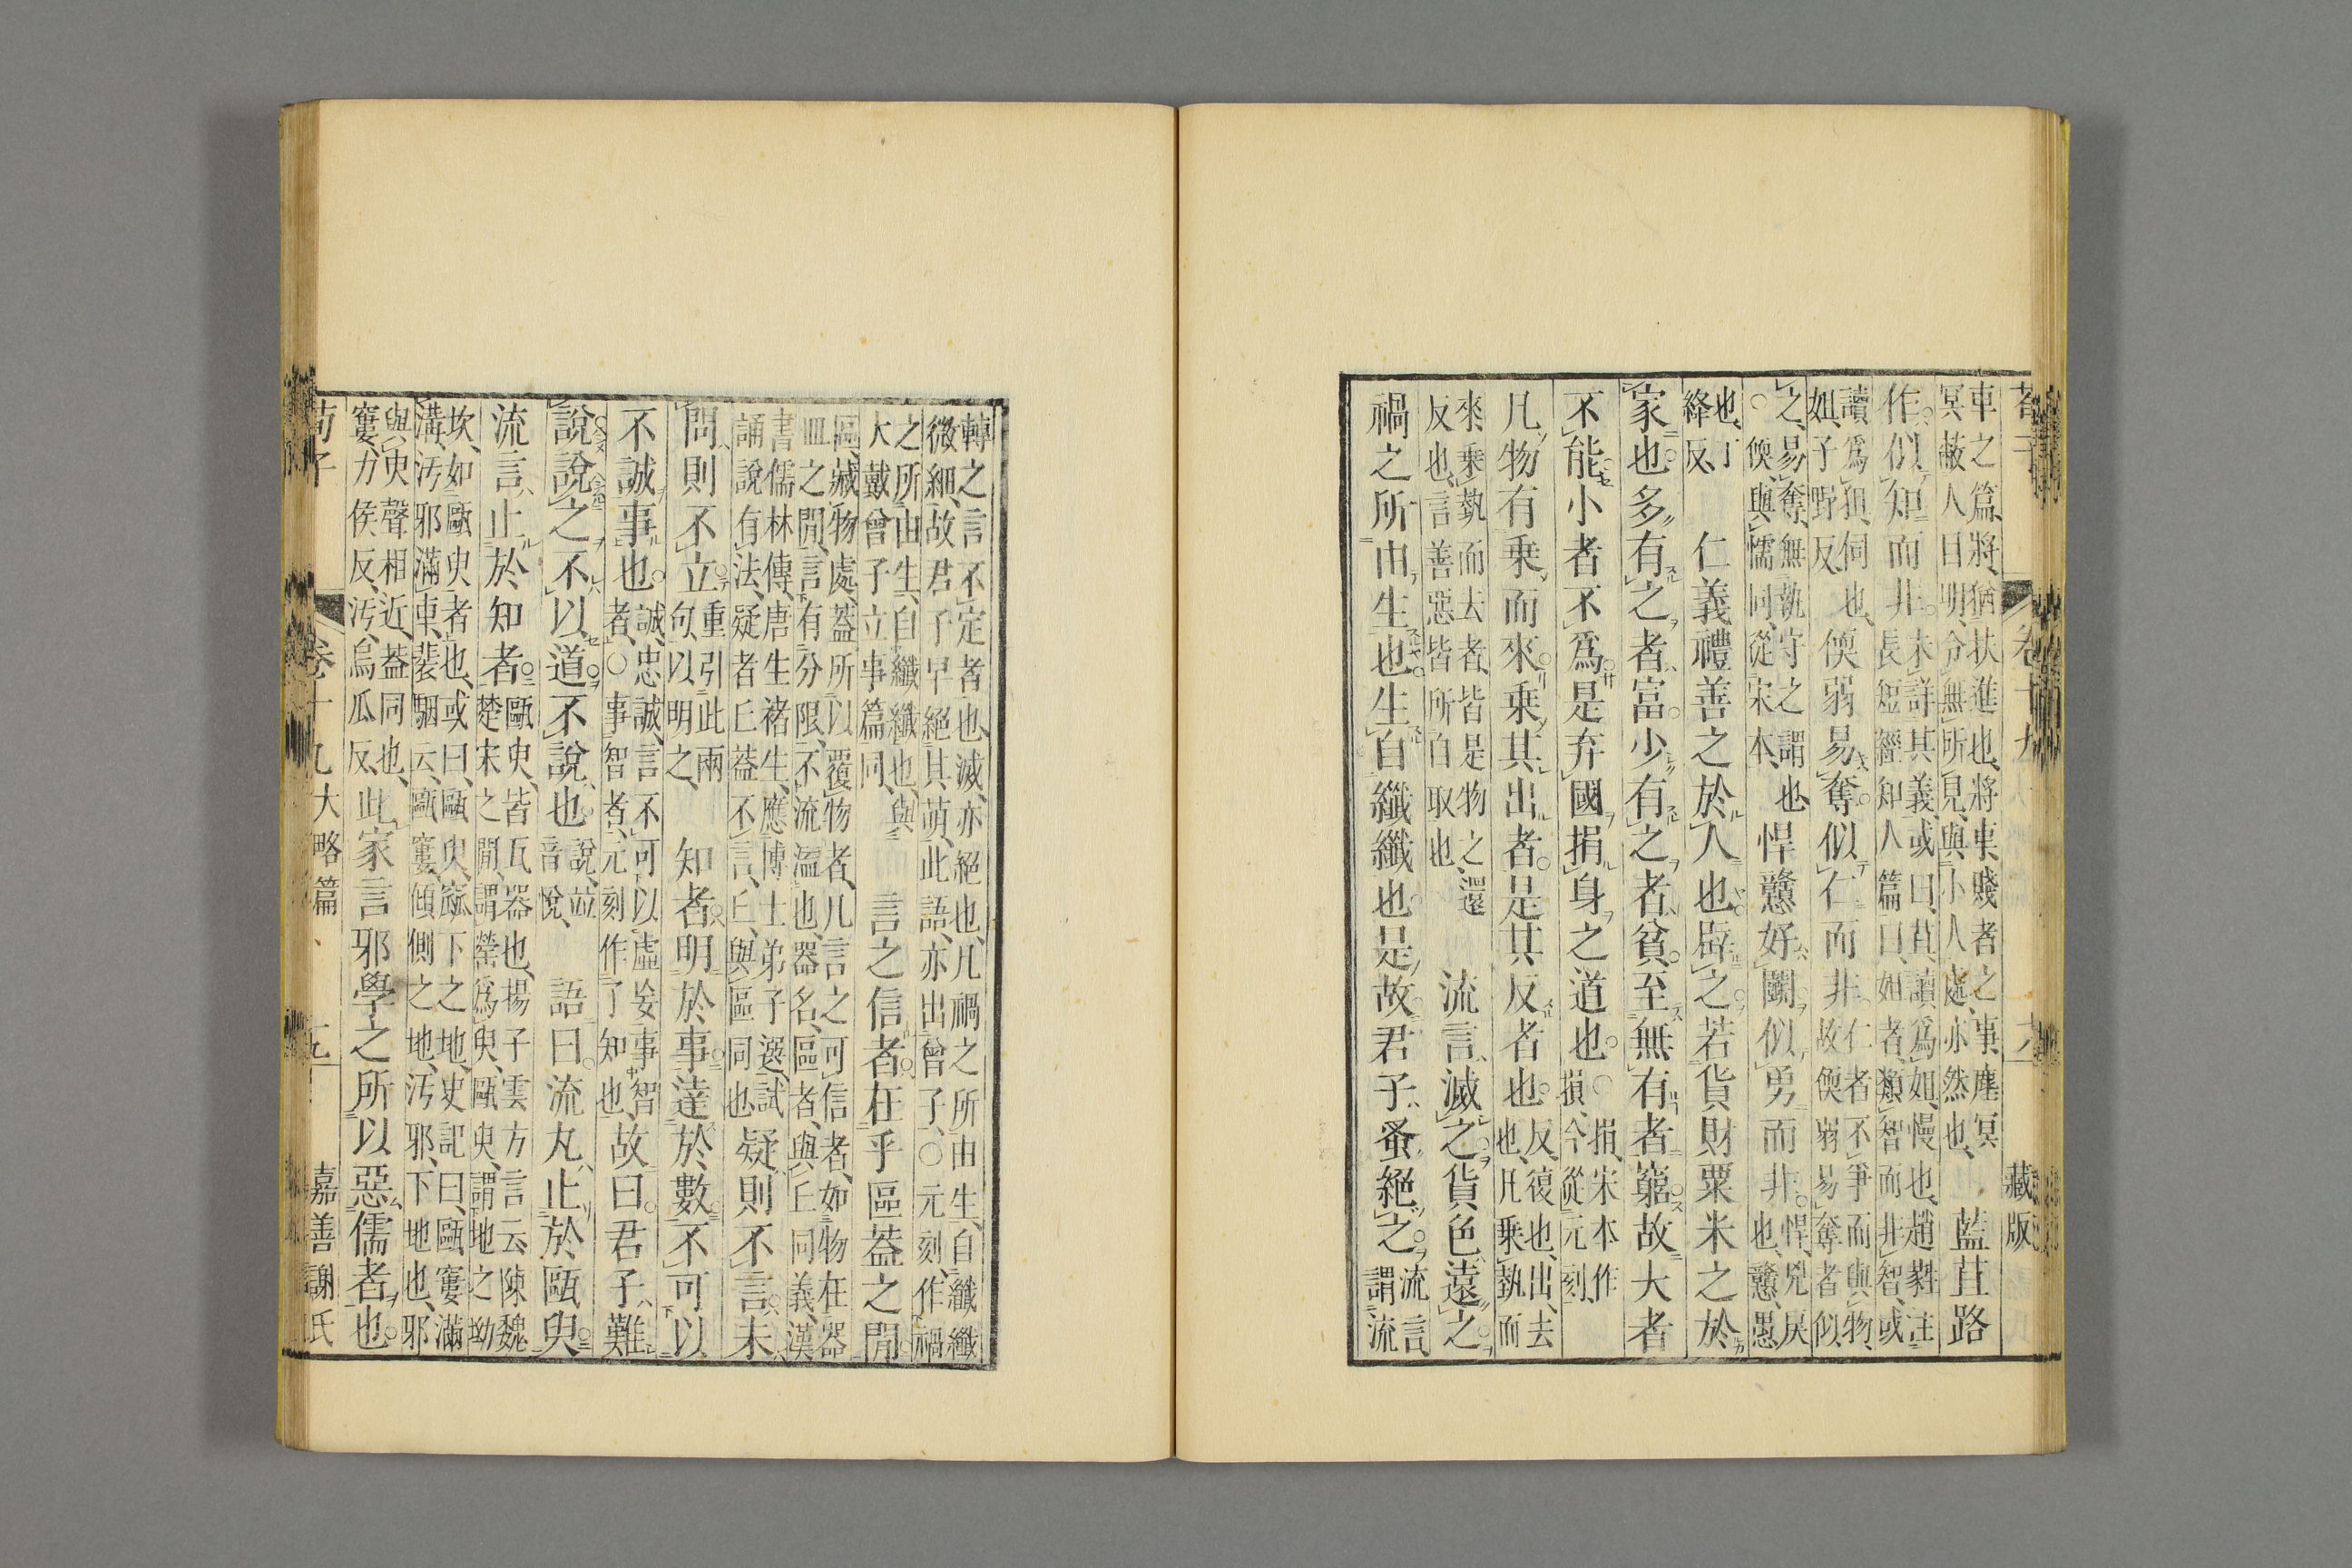 車之篇、將、猶扶進也、將車賤者之事、塵冥
冥蔽人目明、令無所見、與小人處、亦然也、 藍苴路
作。似知而非。 未詳其義、或曰、苴、讀爲姐、慢也、趙蕤注
長短經知人篇曰、姐者、類智而非智、或
讀爲狙、伺也、
姐、子野反、 偄弱易奪。似仁而非。 仁者不爭而與物、
故偄弱易奪者似
之、易奪、無執守之謂也
○偄、與懦同、從宋本、 悍戇好鬭似勇而非。 悍、兇戾
也、戇、愚
也、丁
絳反、 仁義禮善之於人也。辟之若貨財粟米之於
家也。多有之者富。少有之者貧。至無有者窮故大者
不能小者不爲是弃國捐身之道也。 ○捐、宋本作
損、今從元刻、
凡物有乗而來乗其出者。是其反者也。 反、復也、出、去
也、凡乗埶而
來乗埶而去者、皆是物之還
反也、言善惡皆所自取也、 流言滅之貨色遠之。
禍之所由生也。生自纖纖也。是故君子蚤絕之。 流言、
謂流
轉之言不定者也、滅、亦絕也、凡禍之所由生、自纖纖
微細、故君子早絕其萌、此語、亦出曾子、○元刻、作禍
之所由生、自纖纖也、與
大戴曾子立事篇同、 言之信者在乎區葢之閒
區、藏物處、葢、所以覆物者、凡言之可信者、如物在器
皿之閒、言有分限、不流溢也、器名、區者、與丘同義、漢
書儒林傳、唐生褚生、應博士弟子選、試
誦說有法、疑者丘葢不言、丘、與區同也、 疑則不言未
問則不立 重引此兩
句、以明之、 知者明於事達於數不可以
不誠事也。 誠、忠誠、言不可以虛妄事智
者、○事智者、元刻作了知也、 故曰。君子難
說說之不以道不說也。 說、竝
音悅、 語曰。流丸止於甌臾
流言止於知者。 甌臾、皆瓦器也、揚子雲方言云、陳魏
楚宋之閒、謂罃爲臾、甌臾、謂地之坳
坎、如甌臾者也、或曰、甌臾、窳下之地、史記曰、甌窶滿
溝、汚邪滿車、裴駰云、甌窶、傾側之地、汚邪、下地也、邪
與臾聲相近、葢同也、
窶、力侯反、汚、烏瓜反、 此家言邪學之所以惡儒者也。
荀子 卷十九 大略篇、 嘉善謝氏
藏版